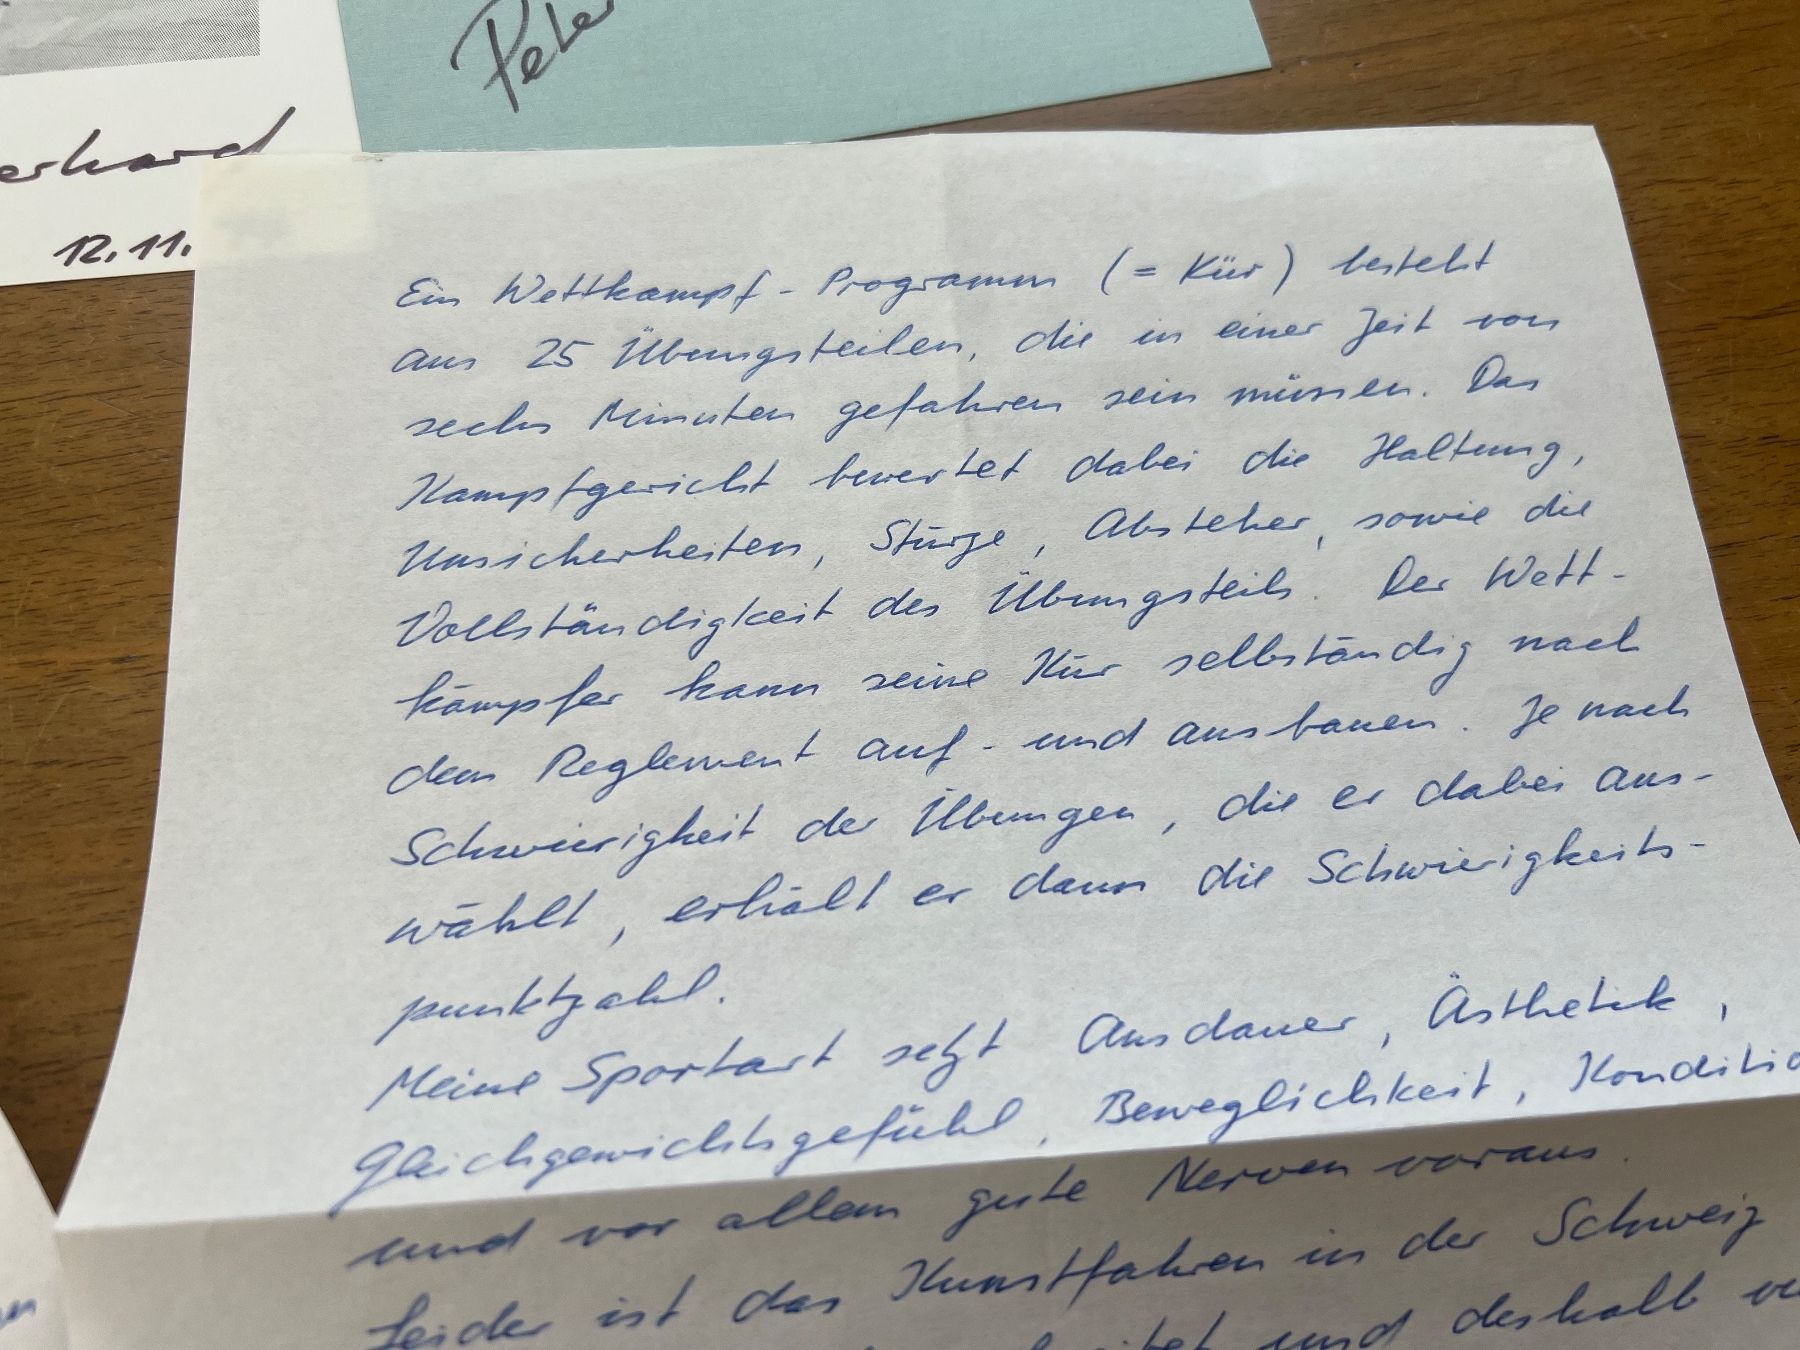 Peter
erhard
12.11.
Ein Wettkampf-Programm (= Kür) besteht
aus 25 Übungsteilen, die in einer Zeit von
sechs Minuten gefahren sein müssen. Das
Kampfgericht bewertet dabei die Haltung,
Unsicherheiten, Stürze, Absteher, sowie die
Vollständigkeit des Übungsteils. Der Wett-
kämpfer kann seine Kür selbständig nach
dem Reglement auf- und ausbauen. Je nach
Schwierigkeit der Übungen, die er dabei aus-
wählt, erhält er dann die Schwierigkeits-
punktzahl.
Meine Sportart setzt Ausdauer, Ästhetik,
Gleichgewichtsgefühl, Beweglichkeit, Konditio
und vor allem gute Nerven voraus.
Leider ist das Kunstfahren in der Schweiz
und deshalb